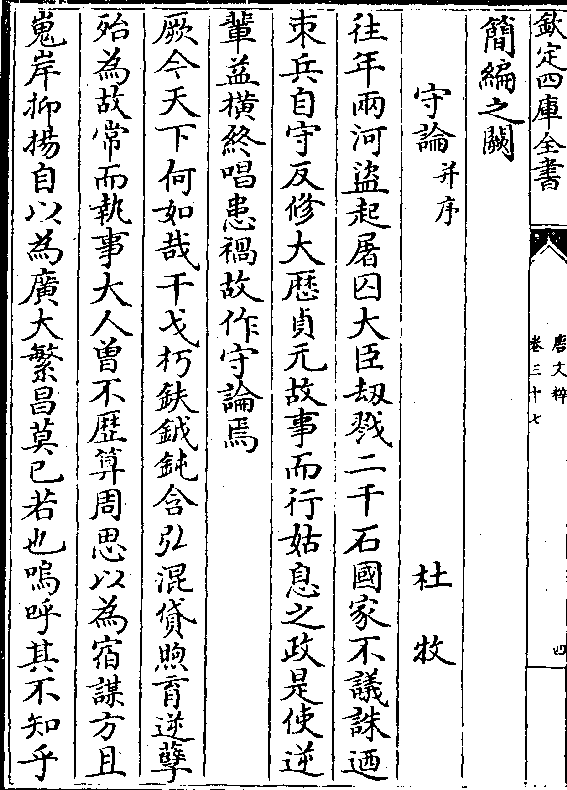 欽定四庫全書
唐文粹
卷三十七
四
簡編之闕
守論并序
杜牧
往年兩河盜起屠囚大臣刼戮二千石國家不議誅迺
朿兵自守反修大厯貞元故事而行姑息之政是使逆
輩益橫終唱患禍故作守論焉
厥今天下何如哉干戈朽鈇鉞鈍含弘混貸煦育逆孽
殆為故常而執事大人曽不歴算周思以為宿謀方且
嵬岸抑揚自以為廣大繁昌莫已若也嗚呼其不知乎